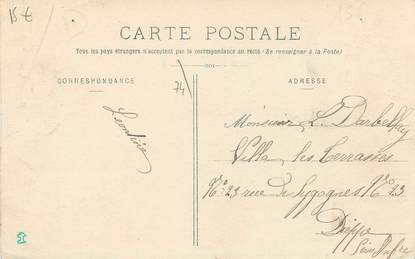 15 €
CARTE POSTALE
Tous les pays étrangers n'acceptent pas la correspondance au recto (Se renseigner à la Poste)
CORRESPONDANCE
ADRESSE
74
Léontine
Monsieur L. Darbelley
Villa les Terrasses
N° 23 rue de Sygognes N° 23
Dieppe
Seine Infre